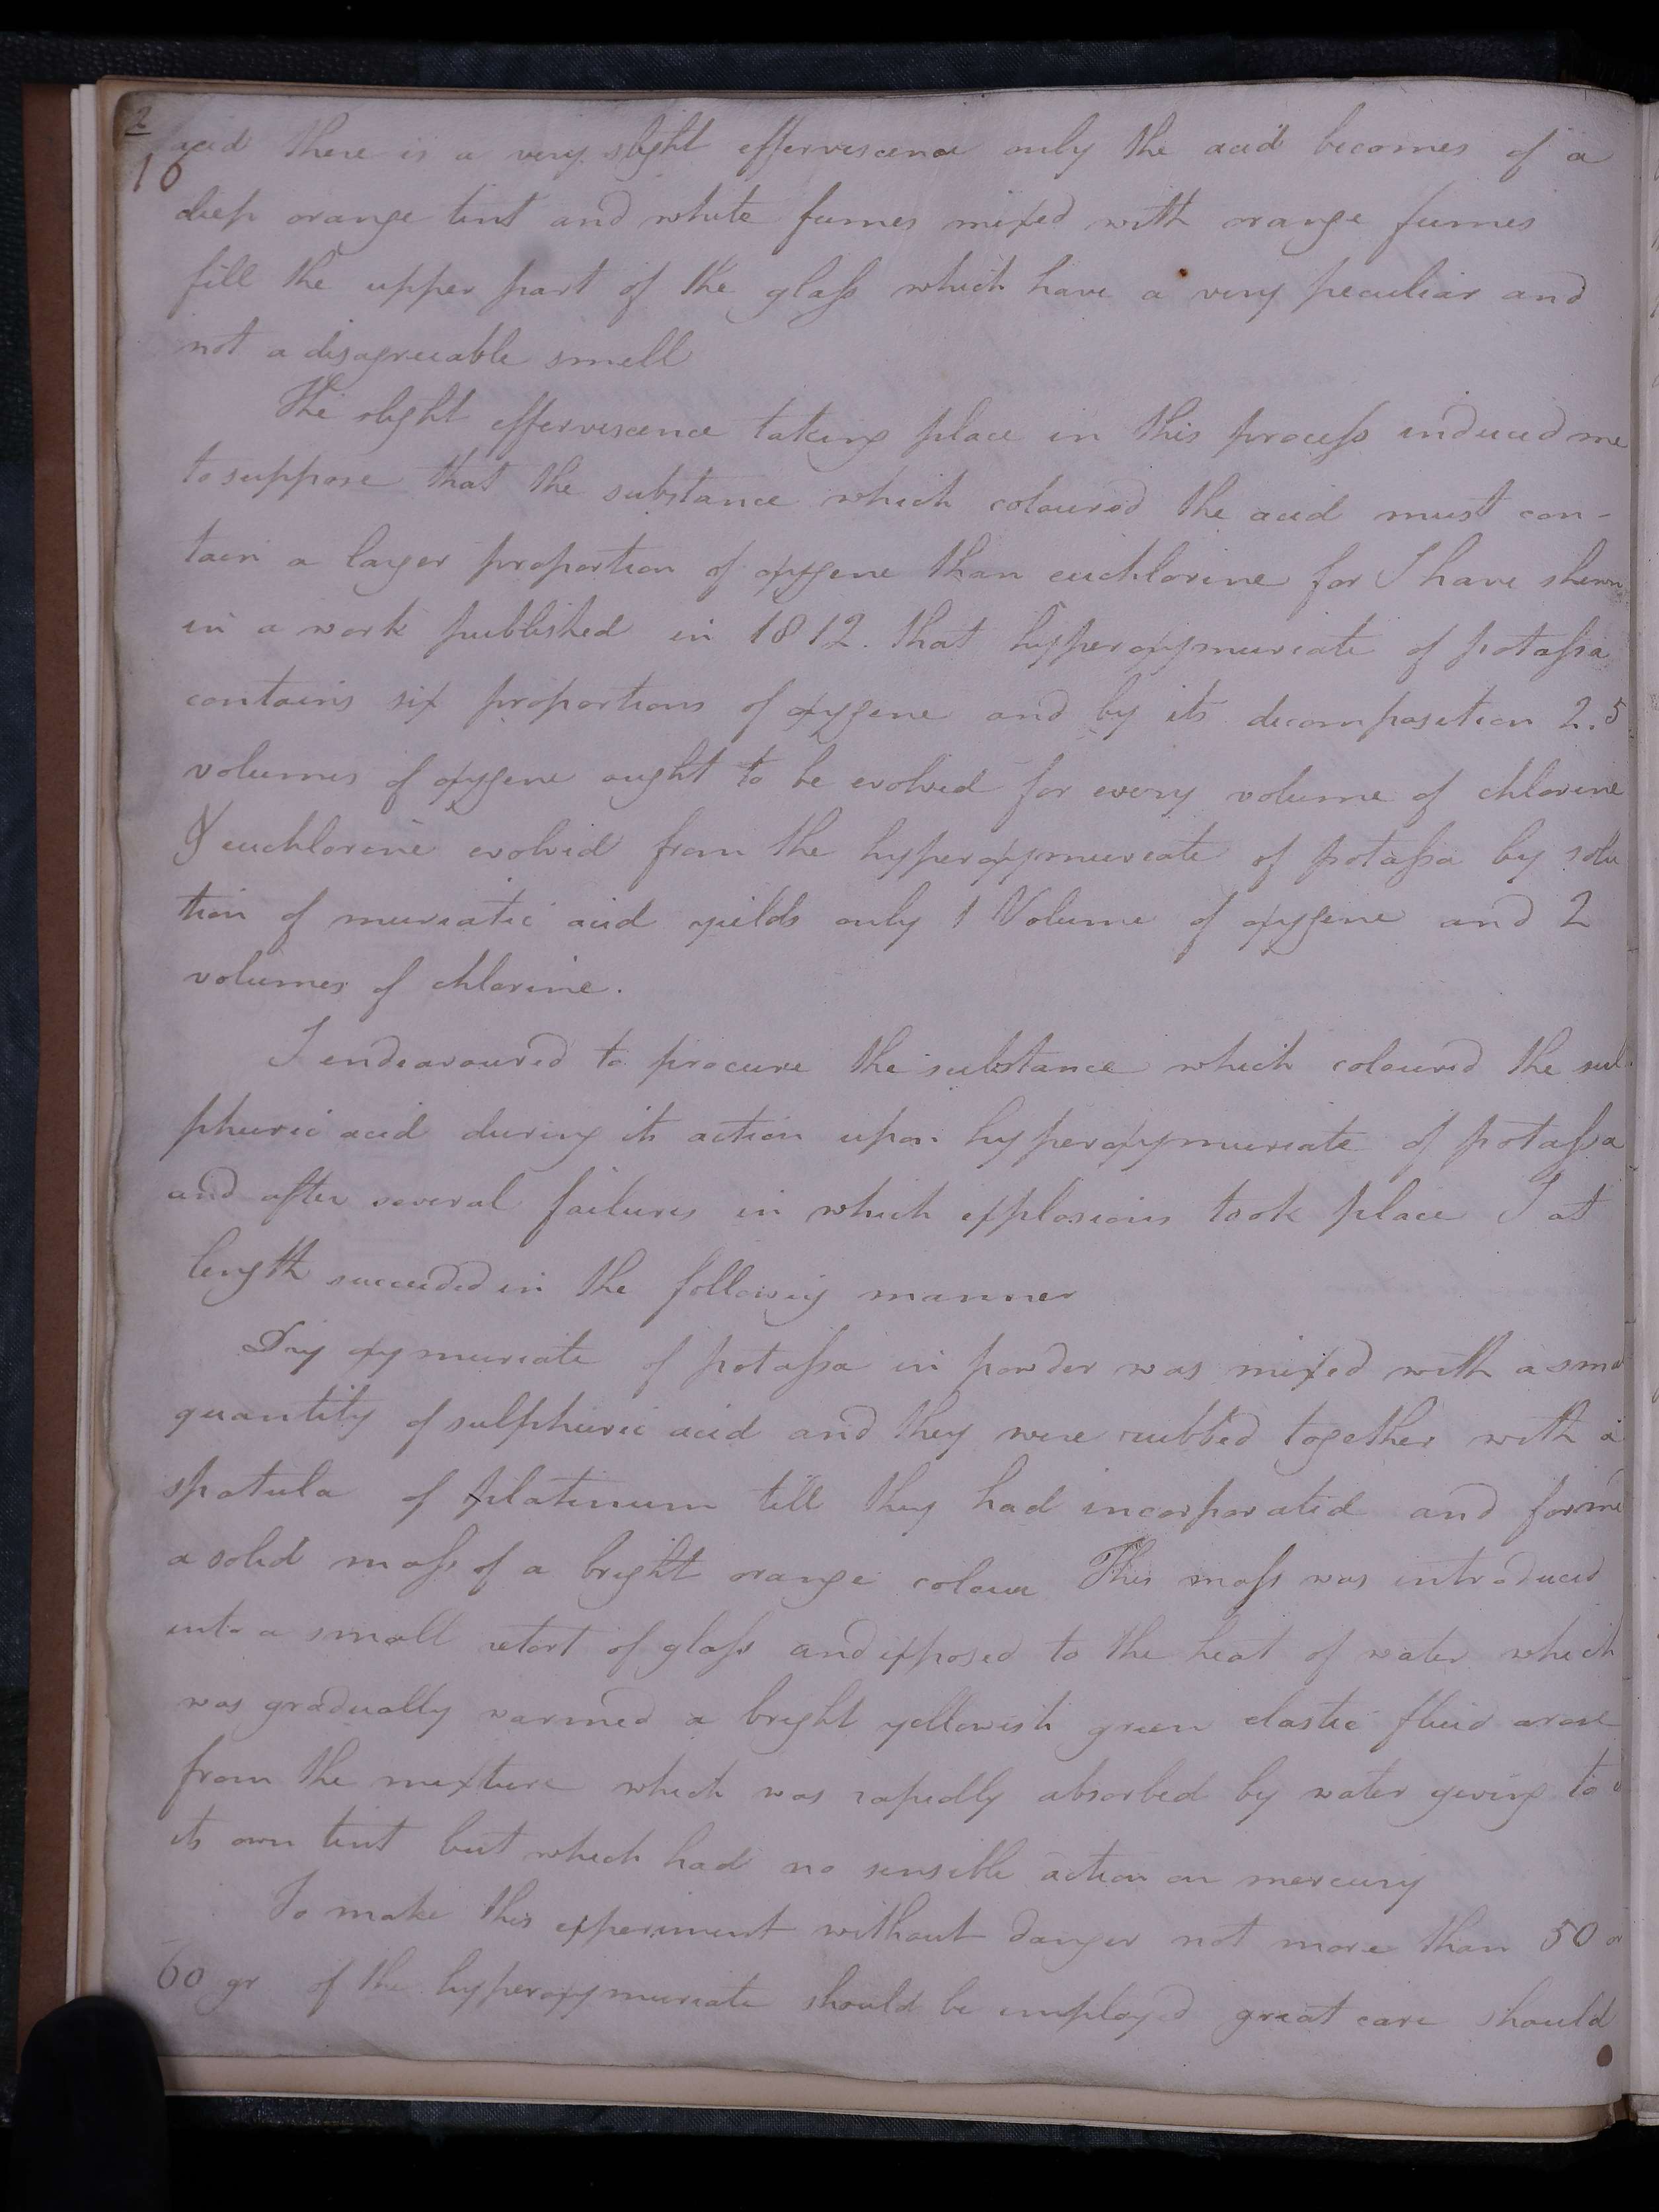 2
16
acid there is a very slight effervescence only the acid becomes of a
deep orange tint and white fumes mixed with orange fumes
fill the upper part of the glass which have a very peculiar and
not a disagreeable smell
The slight effervescence taking place in this process induced me
to suppose that the substance which coloured the acid must con-
tain a larger proportion of oxygene than euchlorine for I have shewn
in a work published in 1812. that hyperoxymuriate of potassa
contains six proportions of oxygene and by its decomposition 2.5
volumes of oxygene ought to be evolved for every volume of chlorine
& euchlorine evolved from the hyperoxymuriate of potassa by solu
tion of muriatic acid yields only 1 Volume of oxygene and 2
volumes of chlorine.
I endeavoured to procure the substance which coloured the sul-
phuric acid during its action upon hyperoxymuriate of potassa
and after several failures in which explosions took place I at
length succeeded in the following manner
Dry oxymuriate of potassa in powder was mixed with a sma
quantity of sulphuric acid and they were rubbed together with a
spatula of platinum till they had incorporated and forme
a solid mass of a bright orange colour This mass was introduced
into a small retort of glass and exposed to the heat of water which
was gradually warmed a bright yellowish green elastic fluid arose
from the mixture which was rapidly absorbed by water giving to
its own tint but which had no sensible action on mercury
To make this experiment without danger not more than 50 or
60 gr of the hyperoxymuriate should be employed great care should